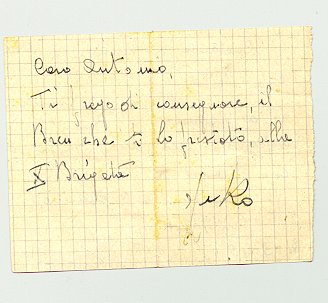 Caro Antonio,
Ti prego di consegnare, il
Bren che ti ho prestato, alla
X Brigata